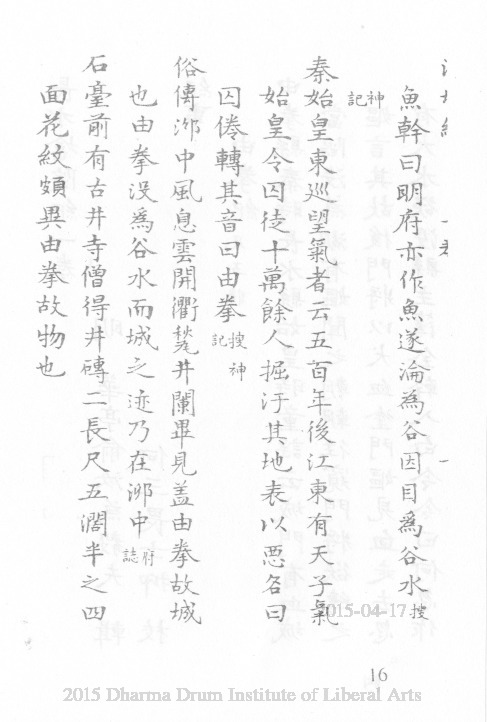 魚幹曰明府亦作魚遂淪為谷因目爲谷水搜
神記
秦始皇東巡望氣者云五百年後江東有天子氣
始皇令囚徒十萬餘人掘汙其地表以惡名曰
囚倦轉其音曰由拳搜神記
俗傳泖中風息雲開衢甃井闌畢見盖由拳故城
也由拳没爲谷水而城之迹乃在泖中府誌
石臺前有古井寺僧得井磚二長尺五濶半之四
面花紋頗異由拳故物也
2015-04-17
16
2015 Dharma Drum Institute of Liberal Arts